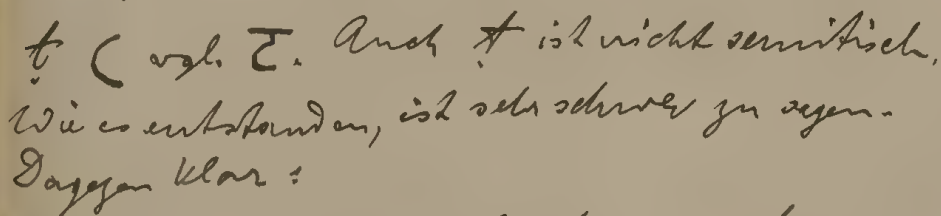 ṭ ( vgl. ꞇ. Auch ṭ ist nicht semitisch.
Wie es entstanden, ist sehr schwer zu sagen.
Dagegen klar: